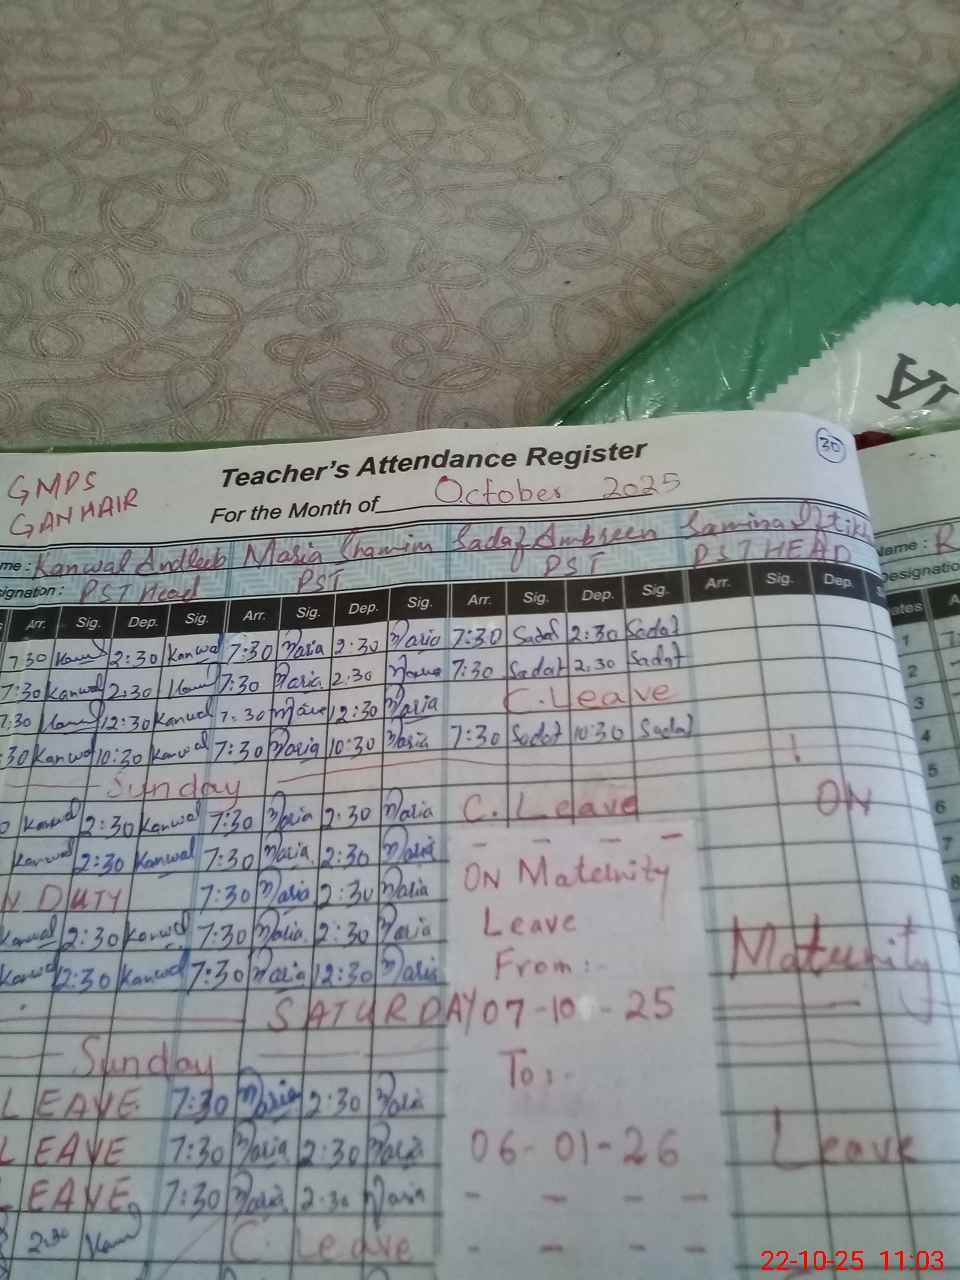 30
GMPS
GANHAIR
Teacher's Attendance Register
For the Month of October 2025
me: Kanwal Andleeb Maria Shamim Sadaf Ambreen Samina Iftikh
signation: PST Head PST PST PST HEAD
Name: R
Designatio
Arr. Sig. Dep. Sig. Arr. Sig. Dep. Sig. Arr. Sig. Dep. Sig. Arr. Sig. Dep.
ates A
7:30 2:30 Kanwal 7:30 Maria 2:30 Maria 7:30 Sadaf 2:30 Sadaf 1
7:30 Kanwal 2:30 7:30 Maria 2:30 7:30 Sadaf 2:30 Sadaf 2
7:30 12:30 Kanwal 7:30 12:30 Maria C. Leave 3
:30 Kanwal 10:30 Kanwal 7:30 Maria 10:30 Maria 7:30 Sadaf 10:30 Sadaf 4
Sunday 5
0 Kanwal 2:30 Kanwal 7:30 Maria 2:30 Maria C. Leave ON 6
Kanwal 2:30 Kanwal 7:30 Maria 2:30 Maria 7
ON Maternity
N DUTY 7:30 Maria 2:30 Maria 8
Leave
Kanwal 2:30 Kanwal 7:30 Maria 2:30 Maria Maternity
From:-
Kanwal 12:30 Kanwal 7:30 Maria 12:30 Maria
SATURDAY 07-10-25
Sunday
To:-
LEAVE 7:30 Maria 2:30 Maria
LEAVE 7:30 Maria 2:30 Maria 06-01-26 Leave
LEAVE 7:30 Maria 2:30 Maria
2:30 C. Leave
22-10-25 11:03